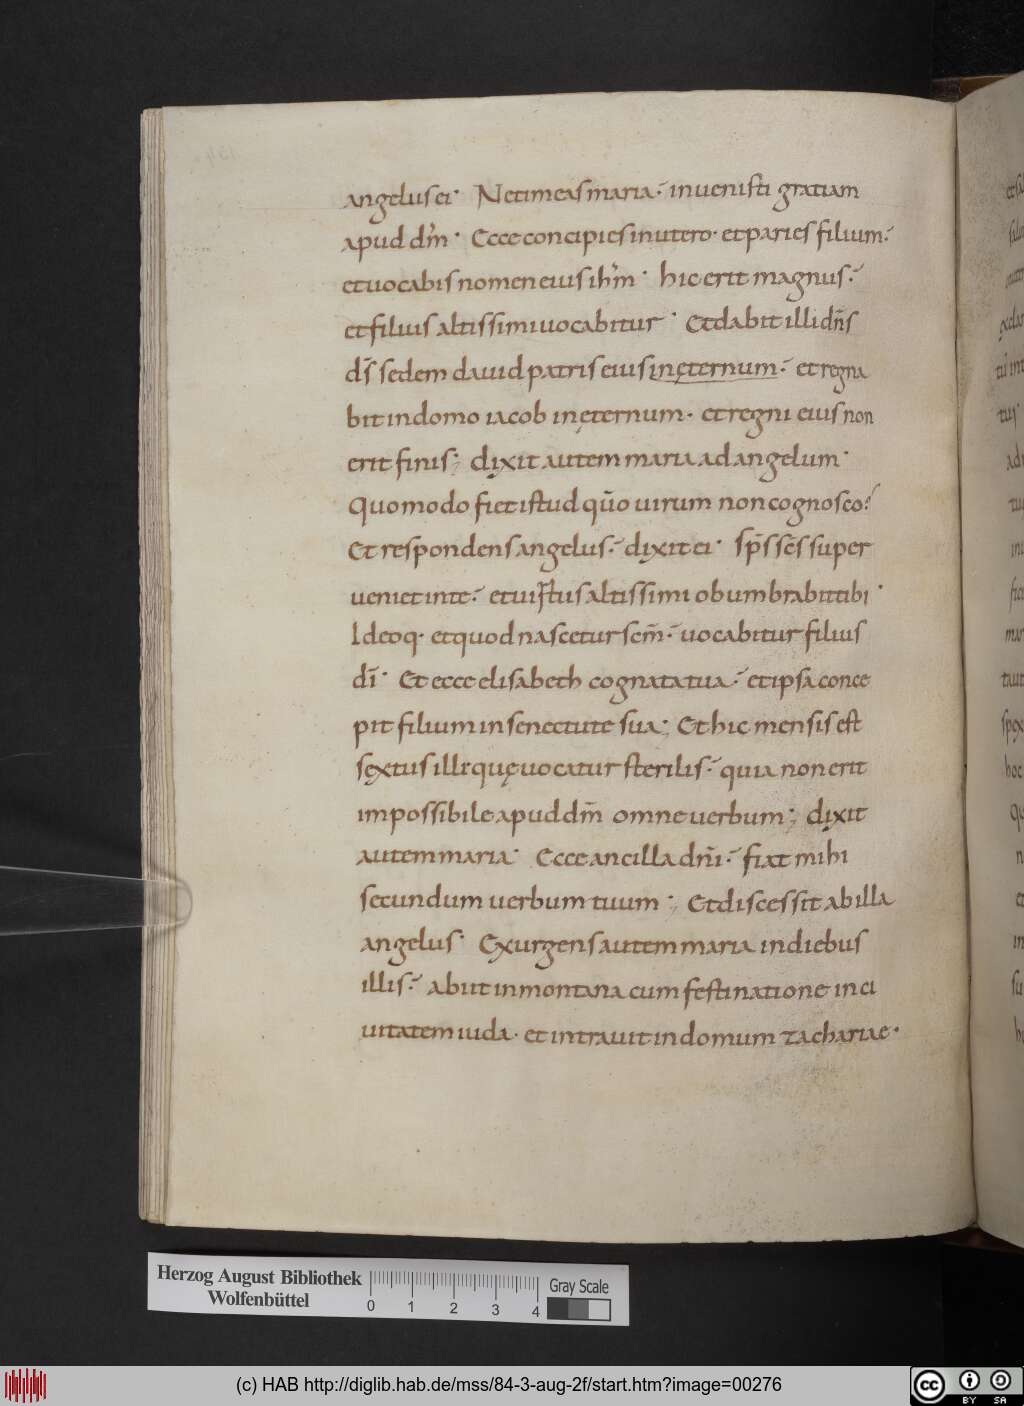 angelus ei· Netimeas maria· invenisti gratiam
apud dm̄· Ecce concipies in utero· et paries filium·
et vocabis nomen eius ihm̄· hic erit magnus·
et filius altissimi uocabitur· Et dabit illi dn̄s
ds̄ sedem dauid patris eius in ęternum· et regna
bit in domo iacob in ęternum· et regni eius non
erit finis; dixit autem maria ad angelum·
Quomodo fiet istud qūo uirum non cognosco?
Et respondens angelus· dixit ei· sp̄s scs̄ super
ueniet in te· et uirtus altissimi obumbrabit tibi·
Ideoq· et quod nascetur scm̄· uocabitur filius
dī· Et ecce elisabeth cognata tua· et ipsa conce
pit filium in senectute sua; Et hic mensis est
sextus illi quę uocatur sterilis· quia non erit
impossibile apud dm̄ omne uerbum; dixit
autem maria· Ecce ancilla dnī· fiat mihi
secundum uerbum tuum; Et discessit ab illa
angelus· Exurgens autem maria in diebus
illis· abiit in montana cum festinatione in ci
uitatem iuda· et intrauit in domum zachariae·
Herzog August Bibliothek
Wolfenbüttel
0 1 2 3 4
Gray Scale
(c) HAB http://diglib.hab.de/mss/84-3-aug-2f/start.htm?image=00276
cc BY SA